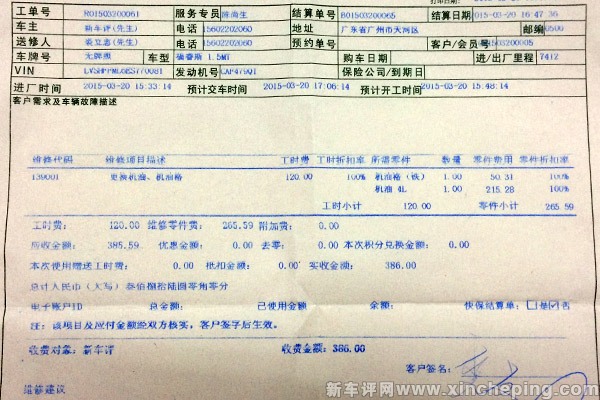 工单号 RO1503200061 服务专员 陈尚生 结算单号 BO1503200065 结算日期 2015-03-20 16:47:36
车主 新车评(先生) 电话 15602202060 地址 广东省广州市天河区 邮编 0500
送修人 (先生) 电话 15602202060 预约单号 客户/会员号
车牌号 无牌照 车型 1.5MT 购车日期 进/出厂里程 7412
VIN 发动机号 保险公司/到期日
进厂时间 2015-03-20 15:33:14 预计交车时间 2015-03-20 17:06:14 预计开工时间 2015-03-20 15:48:14
客户需求及车辆故障描述
维修代码 维修项目描述 工时费 工时折扣率 所需零件 数量 零件费用 零件折扣率
139001 更换机油、机油格 120.00 100% 机油格（铁） 1.00 50.31 100%
机油 4L 1.00 215.28 100%
工时小计 120.00 零件小计 265.59
工时费： 120.00 维修零件费： 265.59 附加费： 0.00
应收金额： 385.59 优惠金额： 0.00 去零： 0.00 本次积分兑换金额： 0.00
本次使用赠送工时费： 0.00 抵扣金额： 0.00 实收金额： 386.00
总计人民币（大写） 叁佰捌拾陆圆零角零分
电子账户ID 总金额： 已使用金额 余额： 快保结算单： □是☑否
注：该项目及应付金额经双方核实，客户签字后生效。
收费对象：新车评 收费金额：386.00
客户签名：
维修建议
新车评网www.xincheping.com